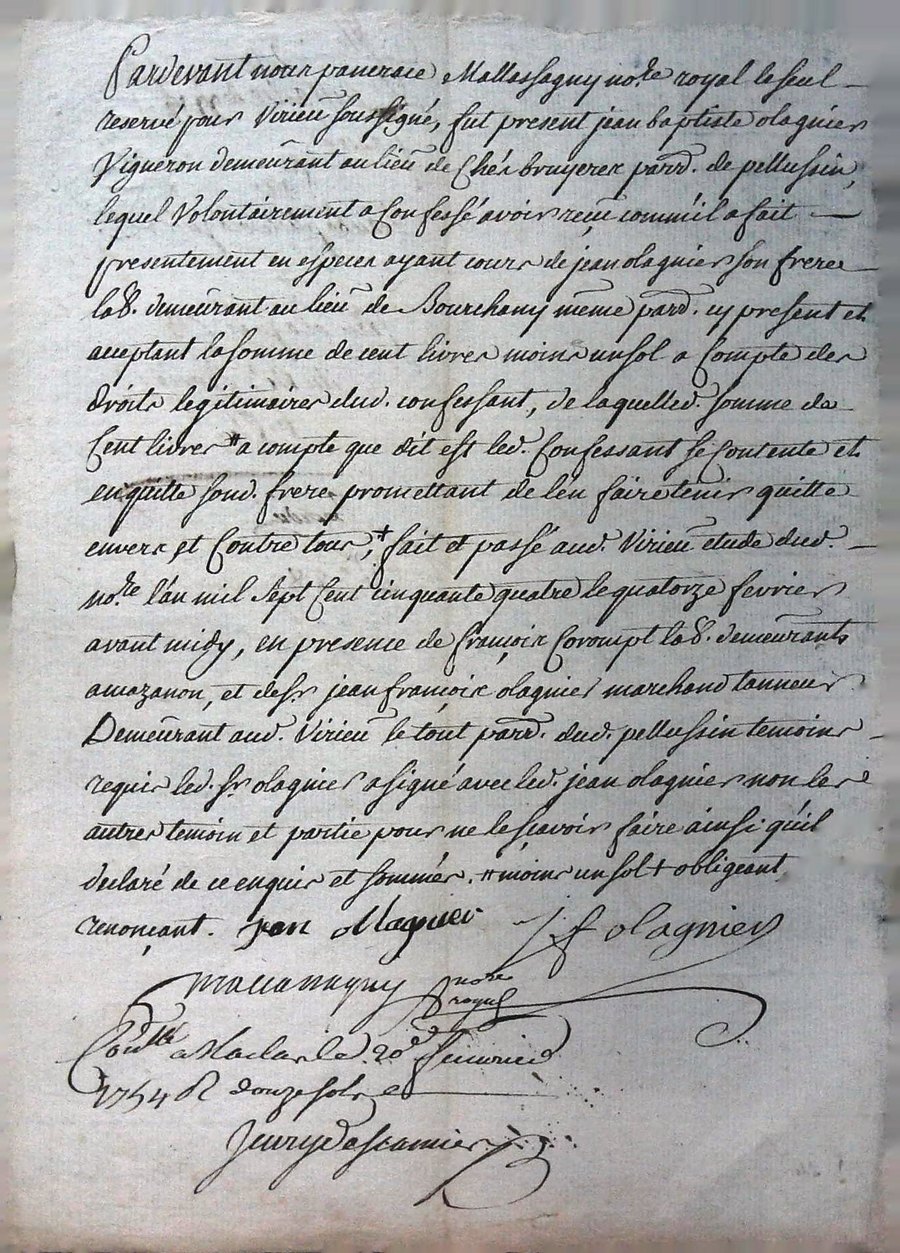 Pardevant nous pancrace Mallassagny no.re royal le seul
reservé pour Virieu soussigné, fut present jean baptiste olagnier
Vigneron demeurant au lieu de Chés bruyerex parr. de pellussin,
lequel Volontairement a Confessé avoir reçu comme il a fait
presentement en especes ayant cours de jean olagnier son frere
lab. demeurant au lieu de Bourchany meme parr. cy present et
acceptant la somme de cent livres moins un sol a Compte des
droits legitimaires dud. confessant, de laquelled. somme de
Cent livres # a compte que dit est led. Confessant se Contente et
en quitte sond. frere promettant de l'en faire tenir quitte
envers et Contre tous, + fait et passé aud. Virieu etude dud.
no.re l'an mil sept Cent cinquante quatre le quatorze fevrier
avant midy, en presence de françois Corompt lab. demeurants
amazanon, et de sr. jean françois olagnier marchand tanneur
Demeurant aud. Virieu le tout parr. dud. pellussin temoins
requis led. sr. olagnier a signé avec led. jean olagnier non les
autres temoin et partie pour ne le sçavoir faire ainsi qu'il
declaré de ce enquis et sommés. # moins un sol + obligeant
renonçant. Jean ollagnier J. f olagnier
Mallassagny no.re
royal
Con.llé a Maclas le 20e fevrier
1754 R douze sols